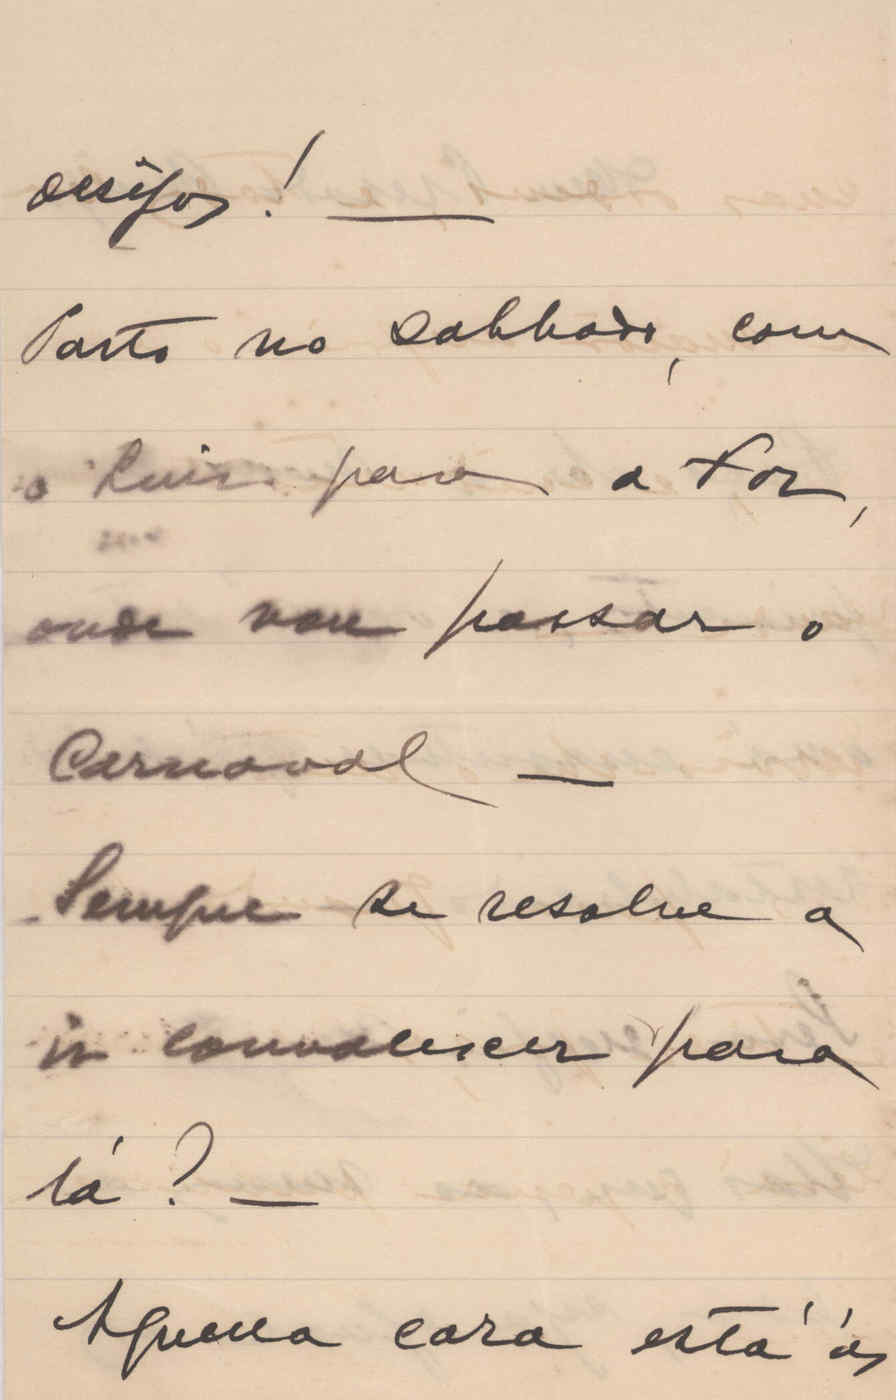 desejos! —
Parto no sabbado, com
o Luis para a Foz,
onde vou passar o
Carnaval —
Sempre se resolve a
ir convalescer para
lá? —
Aquella casa está ás